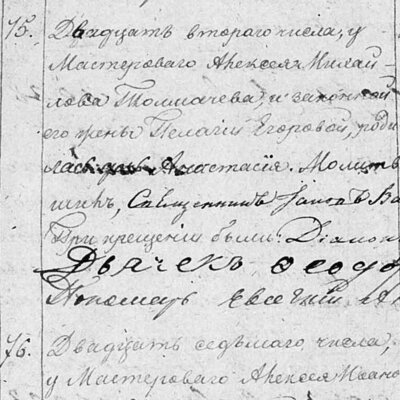 75. Двадцать втораго числа, у
Мастероваго Алексея Михай-
лова Толмачева, и законной
его жены Пелагии Егоровой, роди
лась дочь Анастасія. Молитв
Священникъ
При крещеніи были: Діакон
Дьячекъ Ѳеодо
Пономарь Евсегній
76. Двадцать седьмаго числа,
у Мастероваго Алексея Ивано